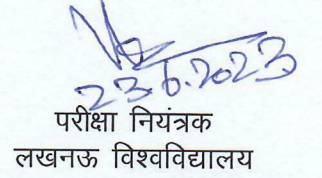 23.6.2023
परीक्षा नियंत्रक
लखनऊ विश्वविद्यालय